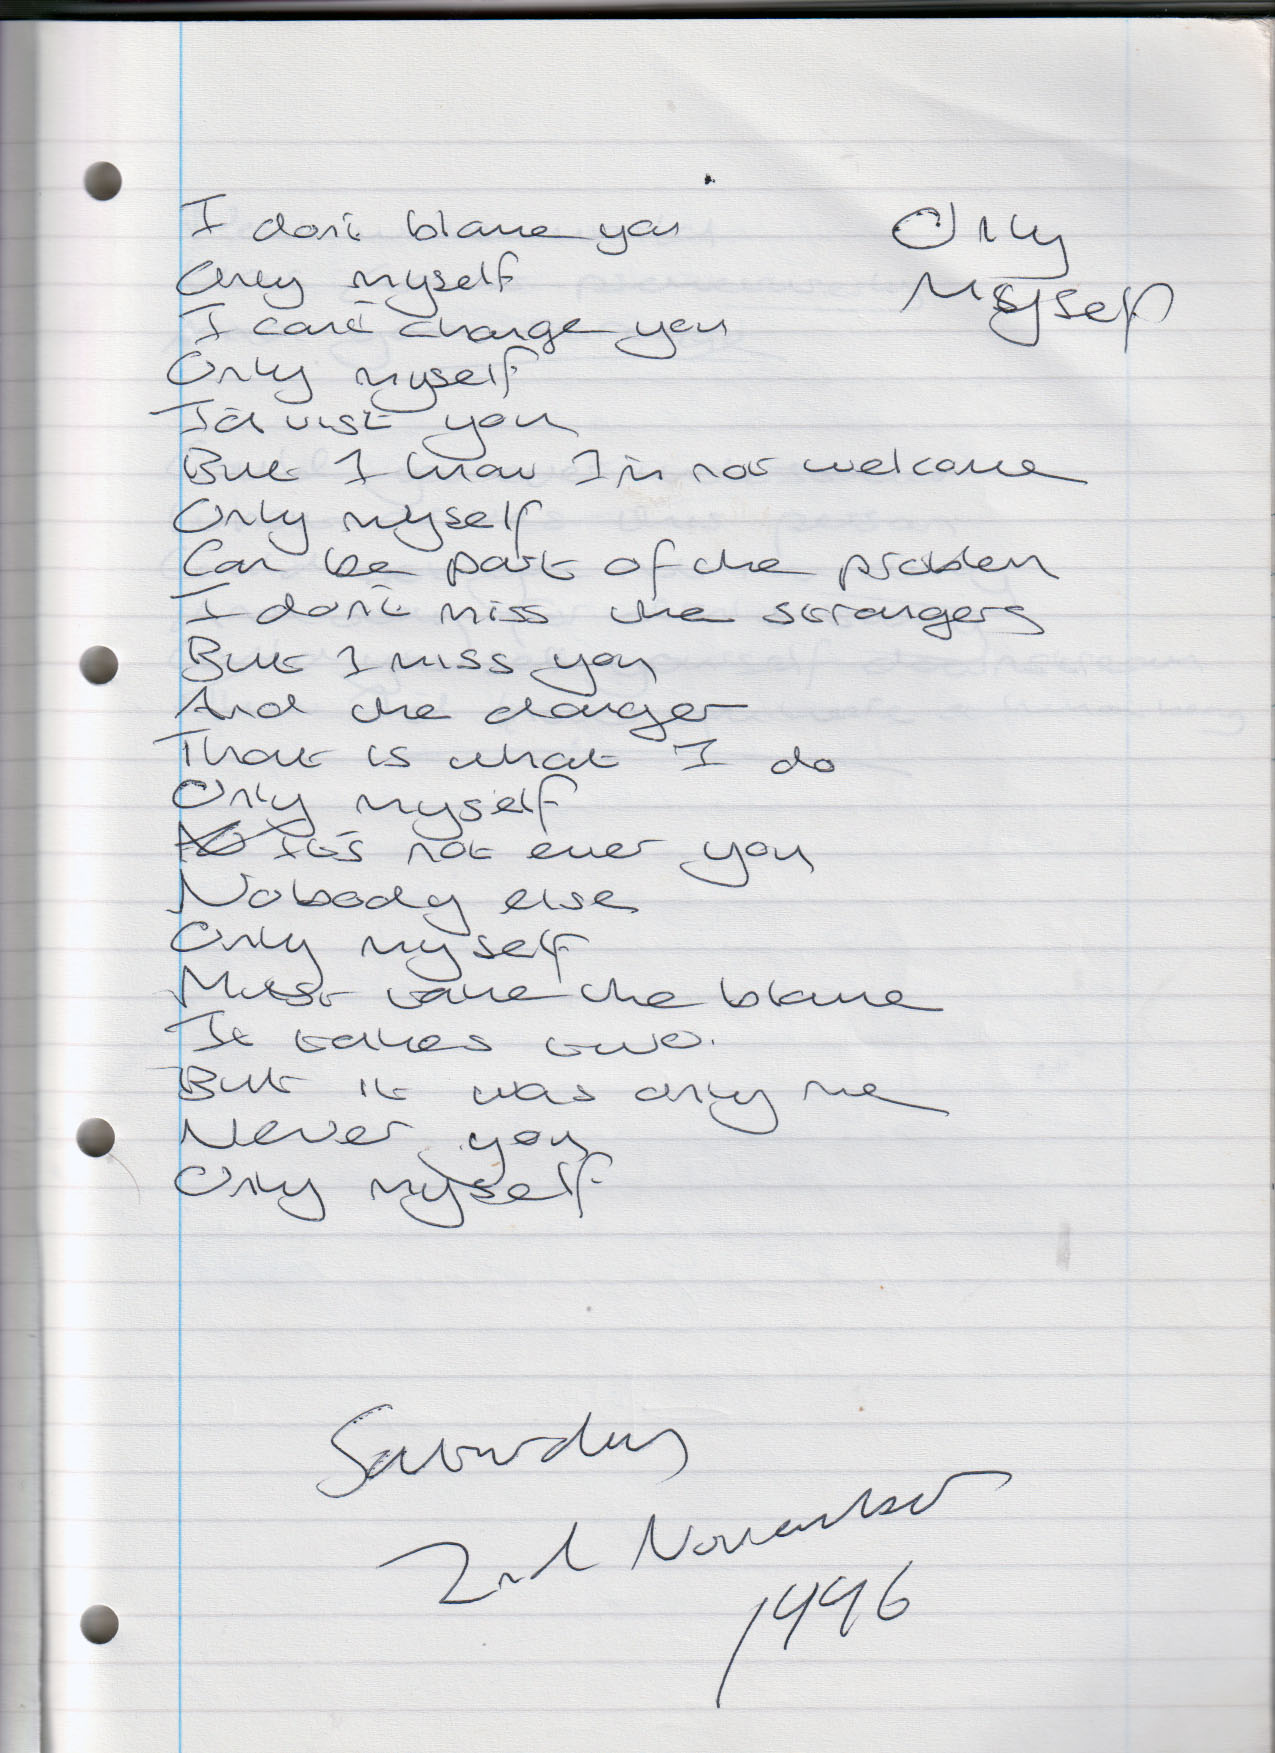 Only
Myself
I don't blame you
Only myself
I can't change you
Only myself
I'd visit you
But I know I'm not welcome
Only myself
Can be part of the problem
I don't miss the strangers
But I miss you
And the danger
That is what I do
Only myself
It's not ever you
Nobody else
Only myself
Must take the blame
It takes two.
But it was only me
Never you
Only myself
Saturday
2nd November
1996